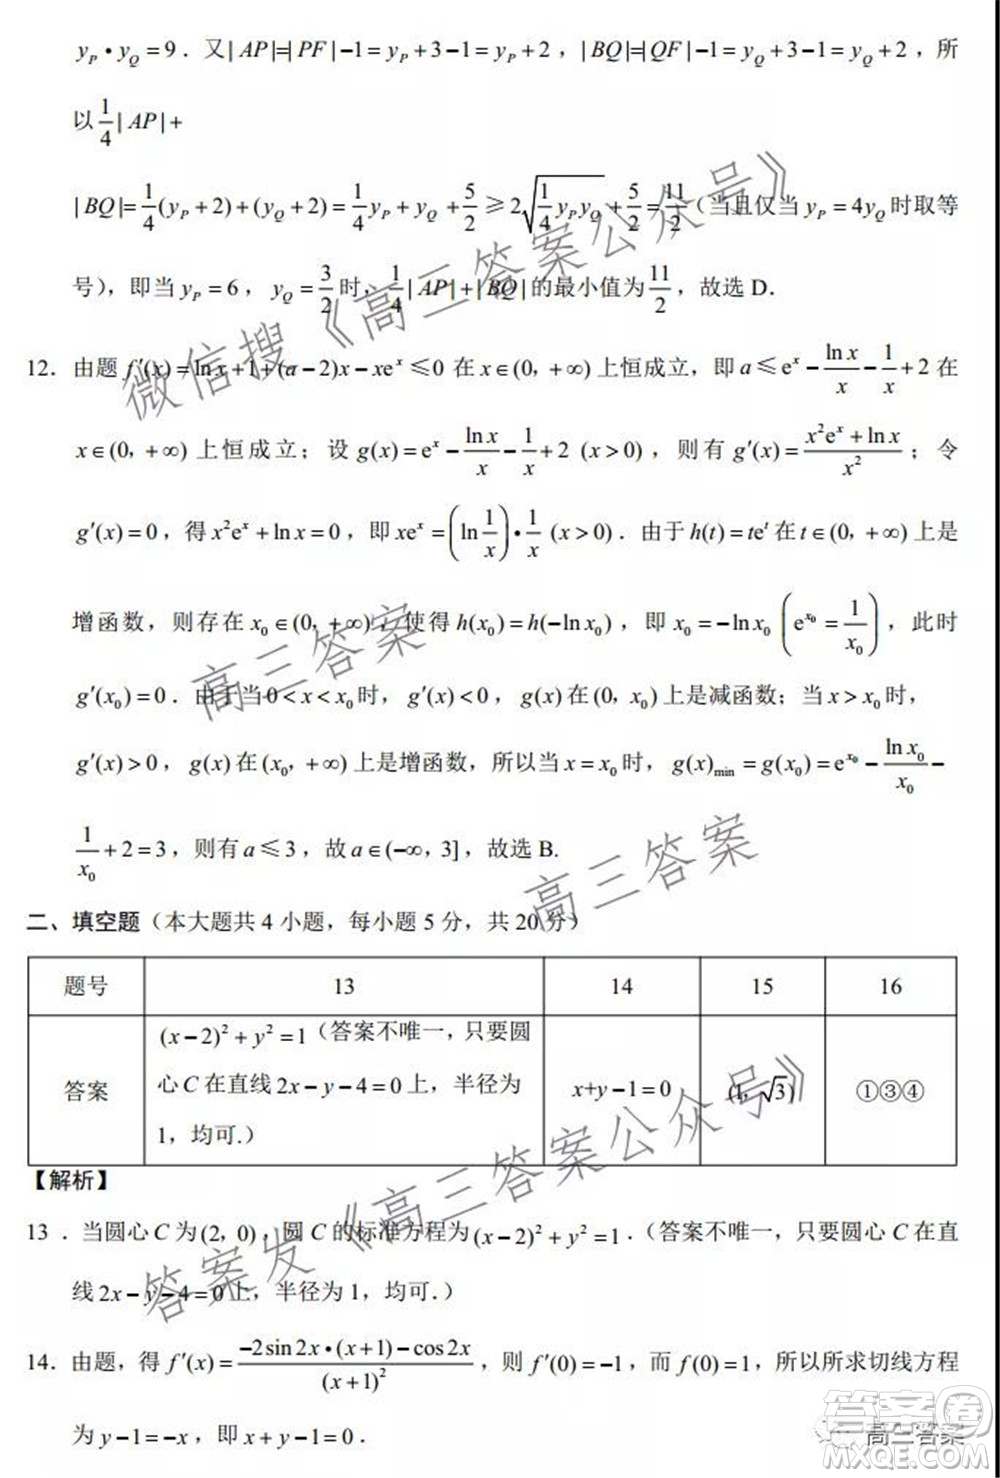 y_P·y_Q=9．又|AP|=|PF|−1=y_P+3−1=y_P+2，|BQ|=|QF|−1=y_Q+3−1=y_Q+2，所
以1/4|AP|+
|BQ|=1/4(y_P+2)+(y_Q+2)=1/4y_P+y_Q+5/2≥2√(1/4y_Py_Q)+5/2=11/2（当且仅当y_P=4y_Q时取等
号），即当y_P=6，y_Q=3/2时，1/4|AP|+|BQ|的最小值为11/2，故选D．
12．由题f′(x)=lnx+1+(a−2)x−xeˣ≤0在x∈(0，+∞)上恒成立，即a≤eˣ−lnx/x−1/x+2在
x∈(0，+∞)上恒成立；设g(x)=eˣ−lnx/x−1/x+2 (x>0)，则有g′(x)=(x²eˣ+lnx)/x²；令
g′(x)=0，得x²eˣ+lnx=0，即xeˣ=(ln1/x)·1/x (x>0)．由于h(t)=teᵗ在t∈(0，+∞)上是
增函数，则存在x₀∈(0，+∞)，使得h(x₀)=h(−lnx₀)，即x₀=−lnx₀(e^x₀=1/x₀)，此时
g′(x₀)=0．由于当0<x<x₀时，g′(x)<0，g(x)在(0，x₀)上是减函数；当x>x₀时，
g′(x)>0，g(x)在(x₀，+∞)上是增函数，所以当x=x₀时，g(x)min=g(x₀)=e^x₀−lnx₀/x₀−
1/x₀+2=3，则有a≤3，故a∈(−∞，3]，故选B.
二、填空题（本大题共4小题，每小题5分，共20分）
题号 13 14 15 16
答案 (x−2)²+y²=1（答案不唯一，只要圆心C在直线2x−y−4=0上，半径为1，均可.） x+y−1=0 (1，√3) ①③④
【解析】
13．当圆心C为(2，0)，圆C的标准方程为(x−2)²+y²=1．（答案不唯一，只要圆心C在直
线2x−y−4=0上，半径为1，均可.）
14．由题，得f′(x)=(−2sin2x·(x+1)−cos2x)/(x+1)²，则f′(0)=−1，而f(0)=1，所以所求切线方程
为y−1=−x，即x+y−1=0．
微信搜《高三答案公众号》
高三答案
高三答案
答案发《高三答案公众号》
答案圈
高三答案
MXQE.COM